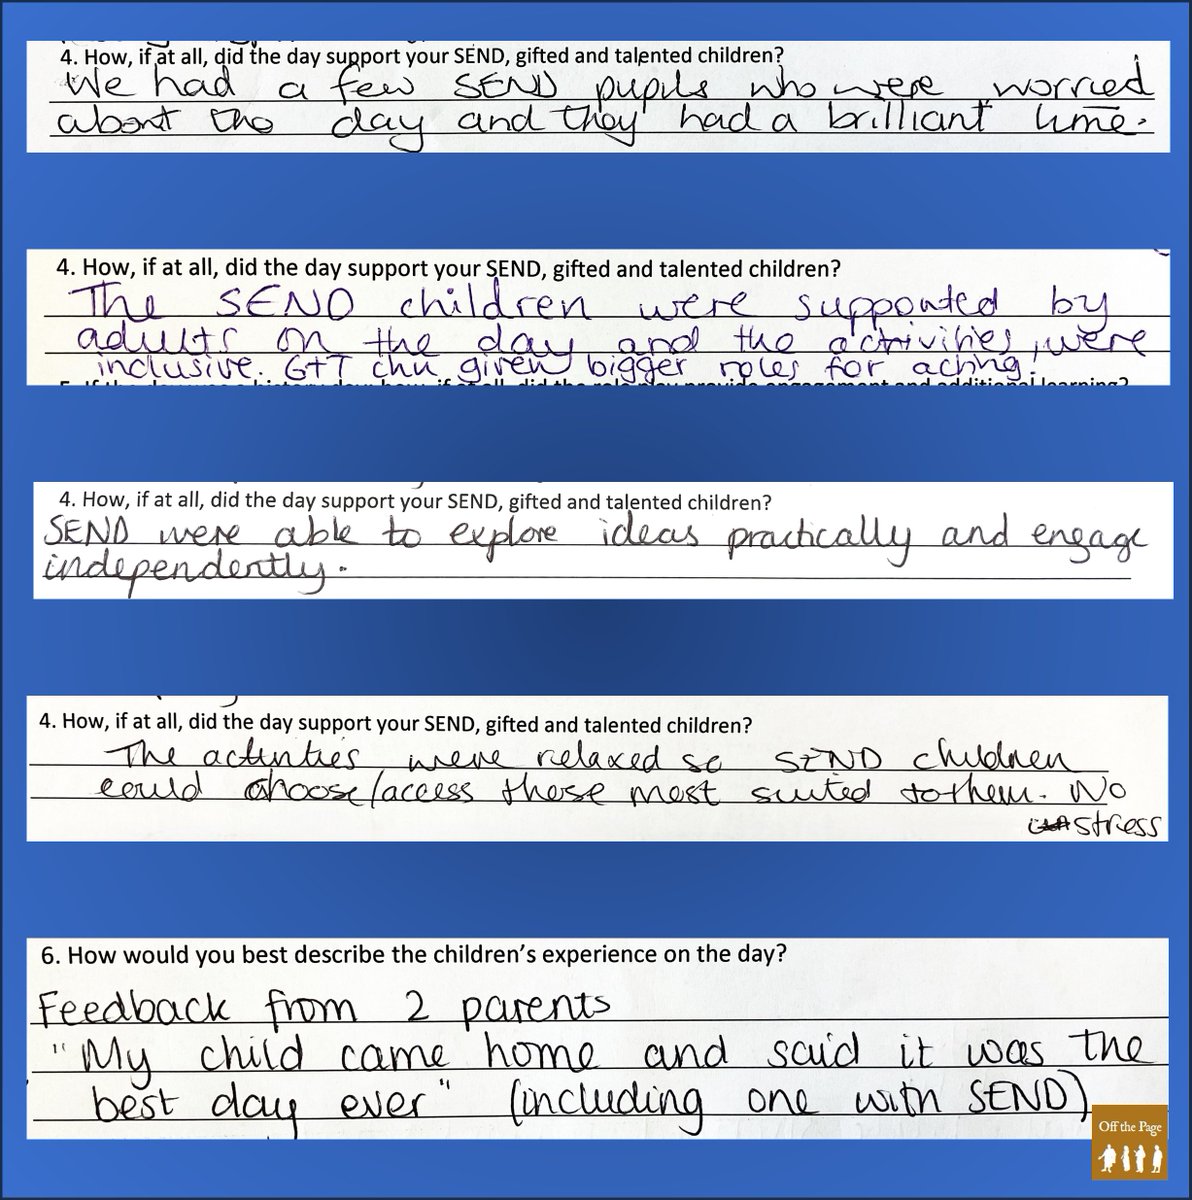 4. How, if at all, did the day support your SEND, gifted and talented children?
We had a few SEND pupils who were worried
about the day and they had a brilliant time.
4. How, if at all, did the day support your SEND, gifted and talented children?
The SEND children were supported by
adults on the day and the activities, were
inclusive. G+T chn given bigger roles for acting.
4. How, if at all, did the day support your SEND, gifted and talented children?
SEND were able to explore ideas practically and engage
independently.
4. How, if at all, did the day support your SEND, gifted and talented children?
The activities were relaxed so SEND children
could choose/access those most suited to them. No
stress
6. How would you best describe the children's experience on the day?
Feedback from 2 parents
"My child came home and said it was the
best day ever" (including one with SEND)
Off the Page